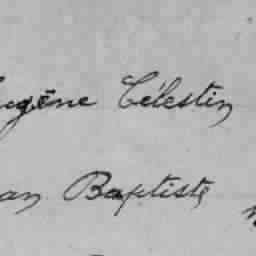 ugène Célestin
an Baptiste